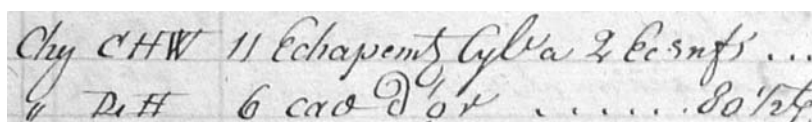 Chy CHW 11 Echapemts Cylra 2 Ecsnfs ...
" DiH 6 cad d'or ...... 80 1/2